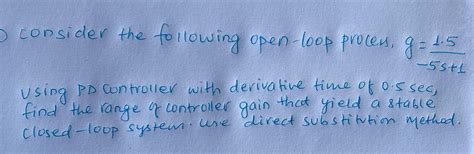 consider the following open-loop process, g = 1.5 / -5s+1
Using PD controller with derivative time of 0.5 sec,
find the range of controller gain that yield a stable
closed-loop system. use direct substitution method.